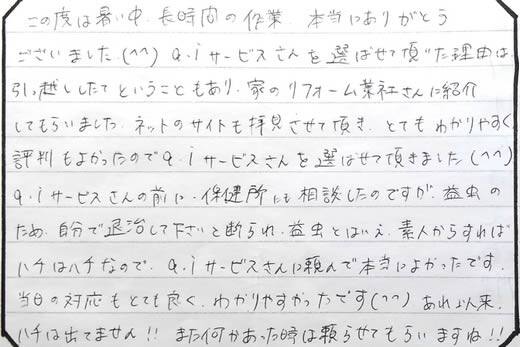 この度は暑い中、長時間の作業、本当にありがとう
ございました(^^) a.iサービスさんを選ばせて頂いた理由は、
引っ越ししたてということもあり、家のリフォーム業社さんに紹介
してもらいました。ネットのサイトも拝見させて頂き、とてもわかりやすく
評判もよかったのでa.iサービスさんを選ばせて頂きました(^^)
a.iサービスさんの前に、保健所にも相談したのですが、益虫の
ため、自分で退治して下さいと断られ、益虫とはいえ、素人からすれば
ハチはハチなので、a.iサービスさんに頼んで本当によかったです。
当日の対応もとても良く、わかりやすかったです(^^) あれ以来、
ハチは出てません!! また何かあった時は頼らせてもらいますね!!